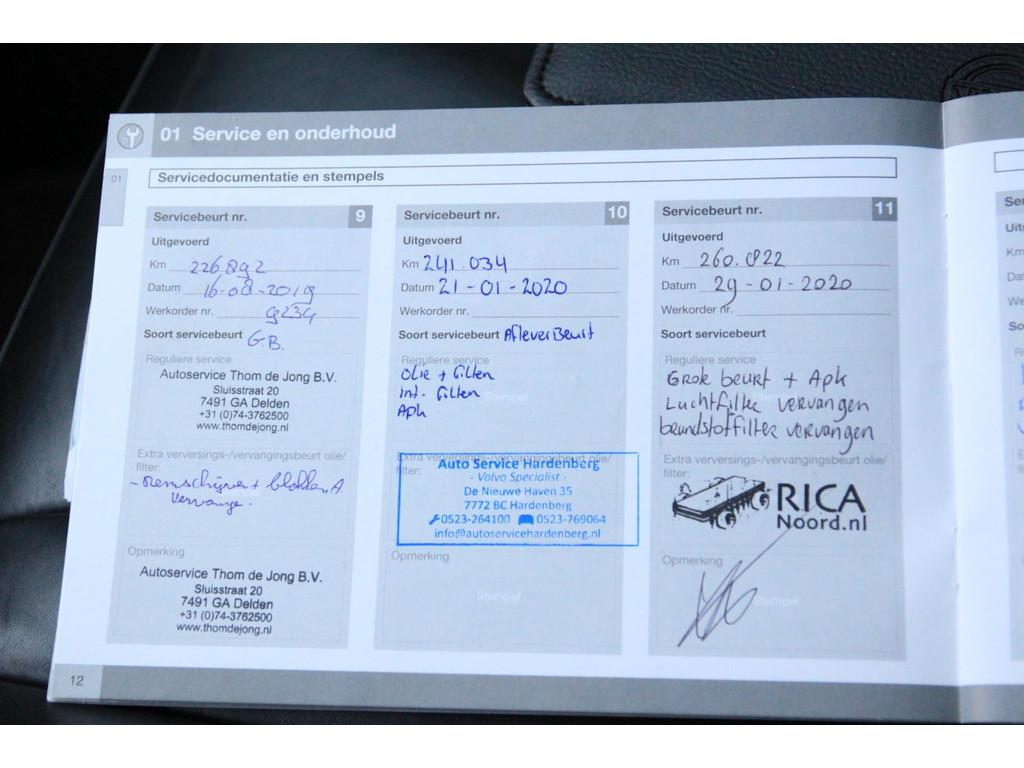 01 Service en onderhoud
01
Servicedocumentatie en stempels
Servicebeurt nr. 9
Uitgevoerd
Km 226892
Datum 16-08-2019
Werkorder nr. 9234
Soort servicebeurt G.B.
Reguliere service
Autoservice Thom de Jong B.V.
Sluisstraat 20
7491 GA Delden
+31 (0)74-3762500
www.thomdejong.nl
Extra verversings-/vervangingsbeurt olie/
filter:
- Remschijven + blokken A.
vervangen.
Opmerking
Autoservice Thom de Jong B.V.
Sluisstraat 20
7491 GA Delden
+31 (0)74-3762500
www.thomdejong.nl
Servicebeurt nr. 10
Uitgevoerd
Km 241.034
Datum 21-01-2020
Werkorder nr.
Soort servicebeurt Afleverbeurt
Reguliere service
Olie + filter
int. filter
Apk
Stempel
Extra verversings-/vervangingsbeurt olie/
Auto Service Hardenberg
- Volvo Specialist -
De Nieuwe Haven 35
7772 BC Hardenberg
0523-264100 0523-769064
info@autoservicehardenberg.nl
Opmerking
Stempel
Servicebeurt nr. 11
Uitgevoerd
Km 260.822
Datum 29-01-2020
Werkorder nr.
Soort servicebeurt
Reguliere service
Grote beurt + Apk
Luchtfilter vervangen
brandstoffilter vervangen
Extra verversings-/vervangingsbeurt olie/
filter:
RICA
Noord.nl
Opmerking
Stempel
12